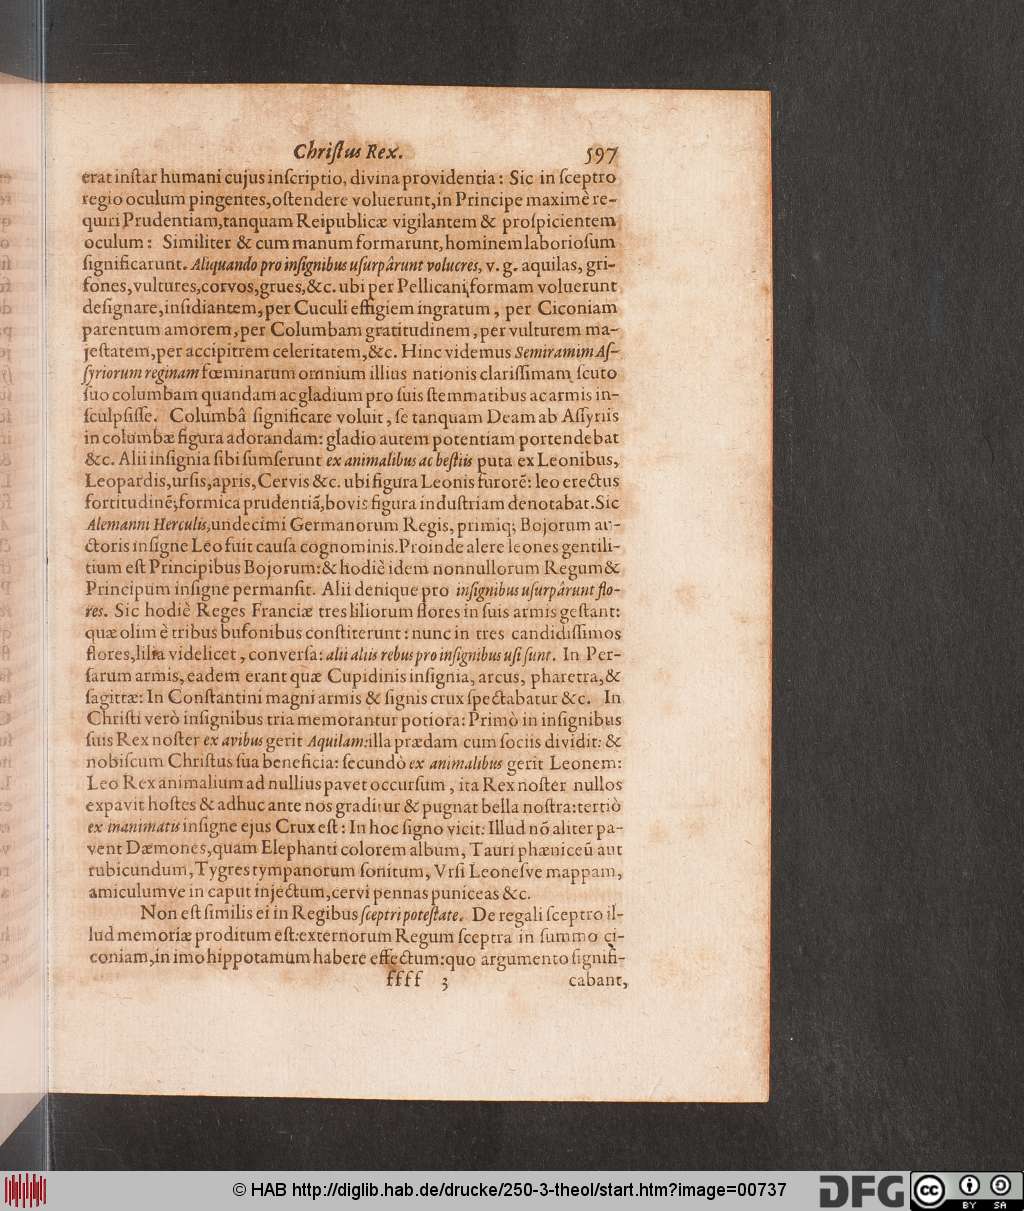 Chriſtus Rex. 597
erat inſtar humani cujus inſcriptio, divina providentia: Sic in ſceptro
regio oculum pingentes, oſtendere voluerunt, in Principe maximè re-
quiri Prudentiam, tanquam Reipublicæ vigilantem & proſpicientem
oculum: Similiter & cum manum formarunt, hominem laborioſum
ſignificarunt. Aliquando pro inſignibus uſurpârunt volucres, v. g. aquilas, gri-
fones, vultures, corvos, grues, &c. ubi per Pellicani formam voluerunt
deſignare, inſidiantem, per Cuculi effigiem ingratum, per Ciconiam
parentum amorem, per Columbam gratitudinem, per vulturem ma-
jeſtatem, per accipitrem celeritatem, &c. Hinc videmus Semiramim Aſ-
ſyriorum reginam fœminarum omnium illius nationis clariſſimam ſcuto
ſuo columbam quandam ac gladium pro ſuis ſtemmatibus ac armis in-
ſculpſiſſe. Columbâ ſignificare voluit, ſe tanquam Deam ab Aſſyriis
in columbæ figura adorandam: gladio autem potentiam portendebat
&c. Alii inſignia ſibi ſumſerunt ex animalibus ac beſtiis puta ex Leonibus,
Leopardis, urſis, apris, Cervis &c. ubi figura Leonis furorẽ: leo erectus
fortitudinẽ; formica prudentiã, bovis figura induſtriam denotabat. Sic
Alemanni Herculis, undecimi Germanorum Regis, primiq; Bojorum au-
ctoris inſigne Leo fuit cauſa cognominis. Proinde alere leones gentili-
tium eſt Principibus Bojorum: & hodiè idem nonnullorum Regum &
Principum inſigne permanſit. Alii denique pro inſignibus uſurpârunt flo-
res. Sic hodiè Reges Franciæ tres liliorum flores in ſuis armis geſtant:
quæ olim è tribus bufonibus conſtiterunt: nunc in tres candidiſſimos
flores, lilia videlicet, converſa: alii aliis rebus pro inſignibus uſi ſunt. In Per-
ſarum armis, eadem erant quæ Cupidinis inſignia, arcus, pharetra, &
ſagittæ: In Conſtantini magni armis & ſignis crux ſpectabatur &c. In
Chriſti verò inſignibus tria memorantur potiora: Primò in inſignibus
ſuis Rex noſter ex avibus gerit Aquilam: illa prædam cum ſociis dividit: &
nobiſcum Chriſtus ſua beneficia: ſecundò ex animalibus gerit Leonem:
Leo Rex animalium ad nullius pavet occurſum, ita Rex noſter nullos
expavit hoſtes & adhuc ante nos graditur & pugnat bella noſtra: tertiò
ex inanimatis inſigne ejus Crux eſt: In hoc ſigno vicit: Illud nõ aliter pa-
vent Dæmones, quam Elephanti colorem album, Tauri phæniceũ aut
rubicundum, Tygres tympanorum ſonitum, Vrſi Leoneſve mappam,
amiculumve in caput injectum, cervi pennas puniceas &c.
Non eſt ſimilis ei in Regibus ſceptri poteſtate. De regali ſceptro il-
lud memoriæ proditum eſt: externorum Regum ſceptra in ſummo ci-
coniam, in imo hippotamum habere effectum: quo argumento ſignifi-
ffff 3 cabant,
© HAB http://diglib.hab.de/drucke/250-3-theol/start.htm?image=00737
DFG
cc BY SA